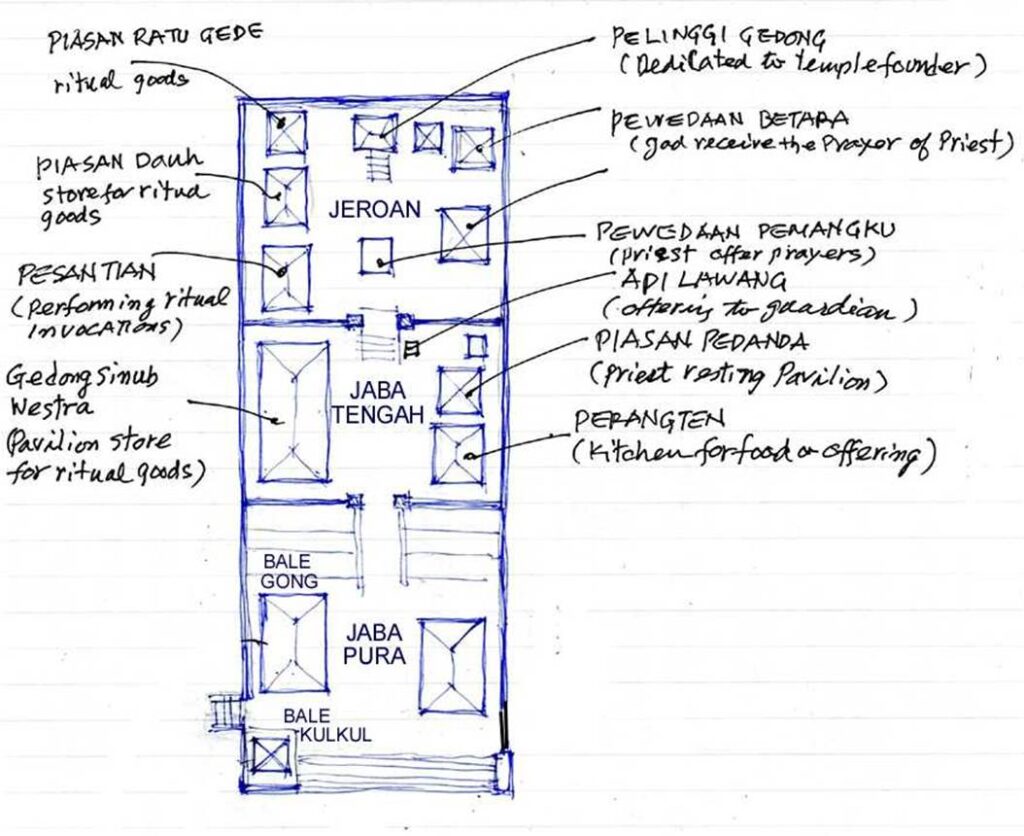 PIASAN RATU GEDE
ritual goods
PIASAN Dauh
store for ritual
goods
PESANTIAN
(performing ritual
INVOCATIONS)
Gedong Sinub
Westra
Pavilion store
for ritual goods)
PELINGGI GEDONG
(Dedicated to temple founder)
PEWEDAAN BETARA
(god receive the Prayor of Priest)
PEWEDAAN PEMANGKU
(priest offer prayers)
APILAWANG
(offering to guardian)
PIASAN PEDANDA
(priest resting Pavilion)
PERANGTEN
(Kitchen for food or offering)
JEROAN
JABA
TENGAH
BALE
GONG
JABA
PURA
BALE
KULKUL